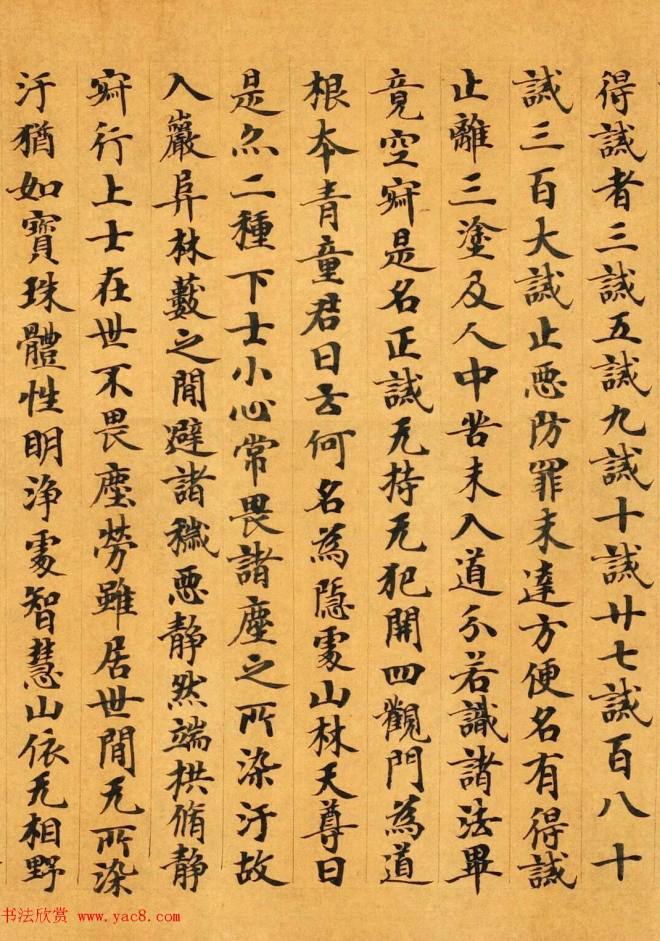 得誡者三誡五誡九誡十誡廿七誡百八十
誡三百大誡止惡防罪未達方便名有得誡
止離三塗及人中苦未入道分若識諸法畢
竟空寂是名正誡无持无犯開四觀門為道
根本青童君曰云何名為隱處山林天尊曰
是亦二種下士小心常畏諸塵之所染汙故
入巖阜林藪之間避諸穢惡静然端拱脩静
寂行上士在世不畏塵勞雖居世間无所染
汙猶如寶珠體性明淨處智慧山依无相野
书法欣赏 www.yac8.com